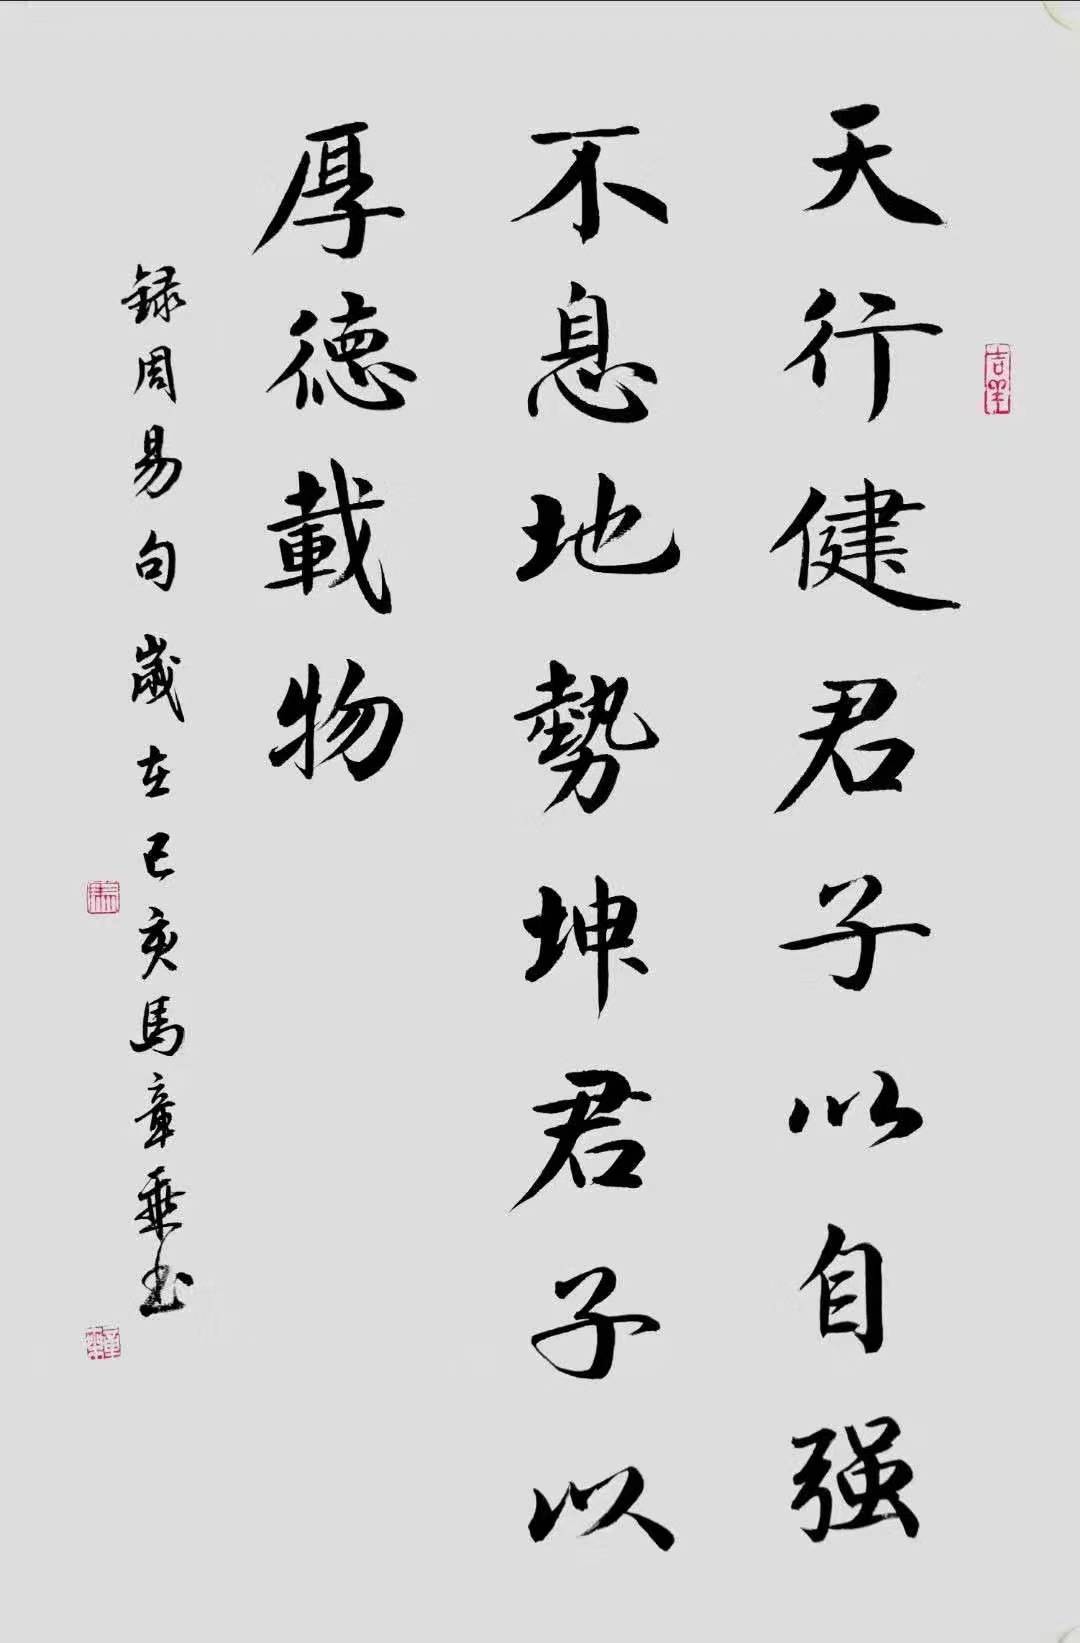 天行健君子以自强
不息地勢坤君子以
厚德載物
録周易句歲在己亥馬章乘书
吉羊